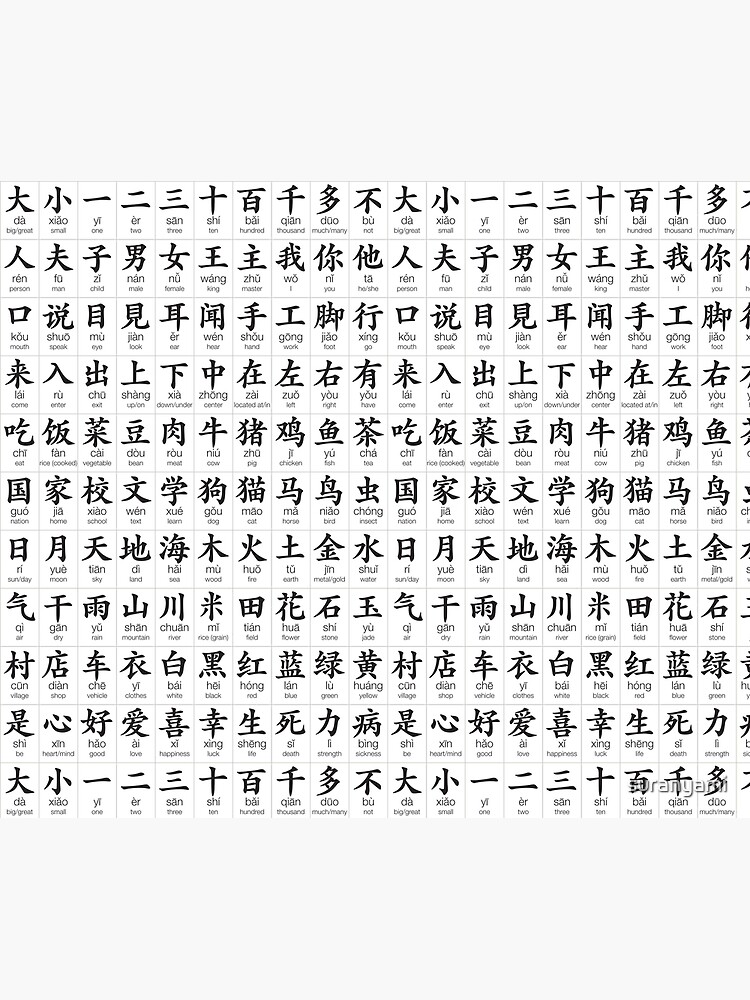 大 小 一 二 三 十 百 千 多 不 大 小 一 二 三 十 百 千 多
dà xiǎo yī èr sān shí bǎi qiān duō bù dà xiǎo yī èr sān shí bǎi qiān duō
big/great small one two three ten hundred thousand much/many not big/great small one two three ten hundred thousand much/many
人 夫 子 男 女 王 主 我 你 他 人 夫 子 男 女 王 主 我 你
rén fū zǐ nán nǚ wáng zhǔ wǒ nǐ tā rén fū zǐ nán nǚ wáng zhǔ wǒ nǐ
person man child male female king master I you he/she person man child male female king master I you
口 说 目 見 耳 闻 手 工 脚 行 口 说 目 見 耳 闻 手 工 脚
kǒu shuō mù jiàn ěr wén shǒu gōng jiǎo xíng kǒu shuō mù jiàn ěr wén shǒu gōng jiǎo
mouth speak eye look ear hear hand work foot go mouth speak eye look ear hear hand work foot
来 入 出 上 下 中 在 左 右 有 来 入 出 上 下 中 在 左 右
lái rù chū shàng xià zhōng zài zuǒ yòu yǒu lái rù chū shàng xià zhōng zài zuǒ yòu
come enter exit up/on down/under center located at/in left right have come enter exit up/on down/under center located at/in left right
吃 饭 菜 豆 肉 牛 猪 鸡 鱼 茶 吃 饭 菜 豆 肉 牛 猪 鸡 鱼
chī fàn cài dòu ròu niú zhū jī yú chá chī fàn cài dòu ròu niú zhū jī yú
eat rice (cooked) vegetable bean meat cow pig chicken fish tea eat rice (cooked) vegetable bean meat cow pig chicken fish
国 家 校 文 学 狗 猫 马 鸟 虫 国 家 校 文 学 狗 猫 马 鸟
guó jiā xiào wén xué gǒu māo mǎ niǎo chóng guó jiā xiào wén xué gǒu māo mǎ niǎo
nation home school text learn dog cat horse bird insect nation home school text learn dog cat horse bird
日 月 天 地 海 木 火 土 金 水 日 月 天 地 海 木 火 土 金
rí yuè tiān dì hǎi mù huǒ tǔ jīn shuǐ rí yuè tiān dì hǎi mù huǒ tǔ jīn
sun/day moon sky land sea wood fire earth metal/gold water sun/day moon sky land sea wood fire earth metal/gold
气 干 雨 山 川 米 田 花 石 玉 气 干 雨 山 川 米 田 花 石
qì gān yǔ shān chuān mǐ tián huā shí yù qì gān yǔ shān chuān mǐ tián huā shí
air dry rain mountain river rice (grain) field flower stone jade air dry rain mountain river rice (grain) field flower stone
村 店 车 衣 白 黑 红 蓝 绿 黄 村 店 车 衣 白 黑 红 蓝 绿
cūn diàn chē yī bái hēi hóng lán lù huáng cūn diàn chē yī bái hēi hóng lán lù
village shop vehicle clothes white black red blue green yellow village shop vehicle clothes white black red blue green
是 心 好 爱 喜 幸 生 死 力 病 是 心 好 爱 喜 幸 生 死 力
shì xīn hǎo ài xǐ xing shēng sǐ lì bìng shì xīn hǎo ài xǐ xing shēng sǐ lì
be heart/mind good love happiness luck life death strength sickness be heart/mind good love happiness luck life death strength
大 小 一 二 三 十 百 千 多 不 大 小 一 二 三 十 百 千 多
dà xiǎo yī èr sān shí bǎi qiān duō bù dà xiǎo yī èr sān shí bǎi qiān duō
big/great small one two three ten hundred thousand much/many not big/great small one two three ten hundred thousand much/many
suranyami